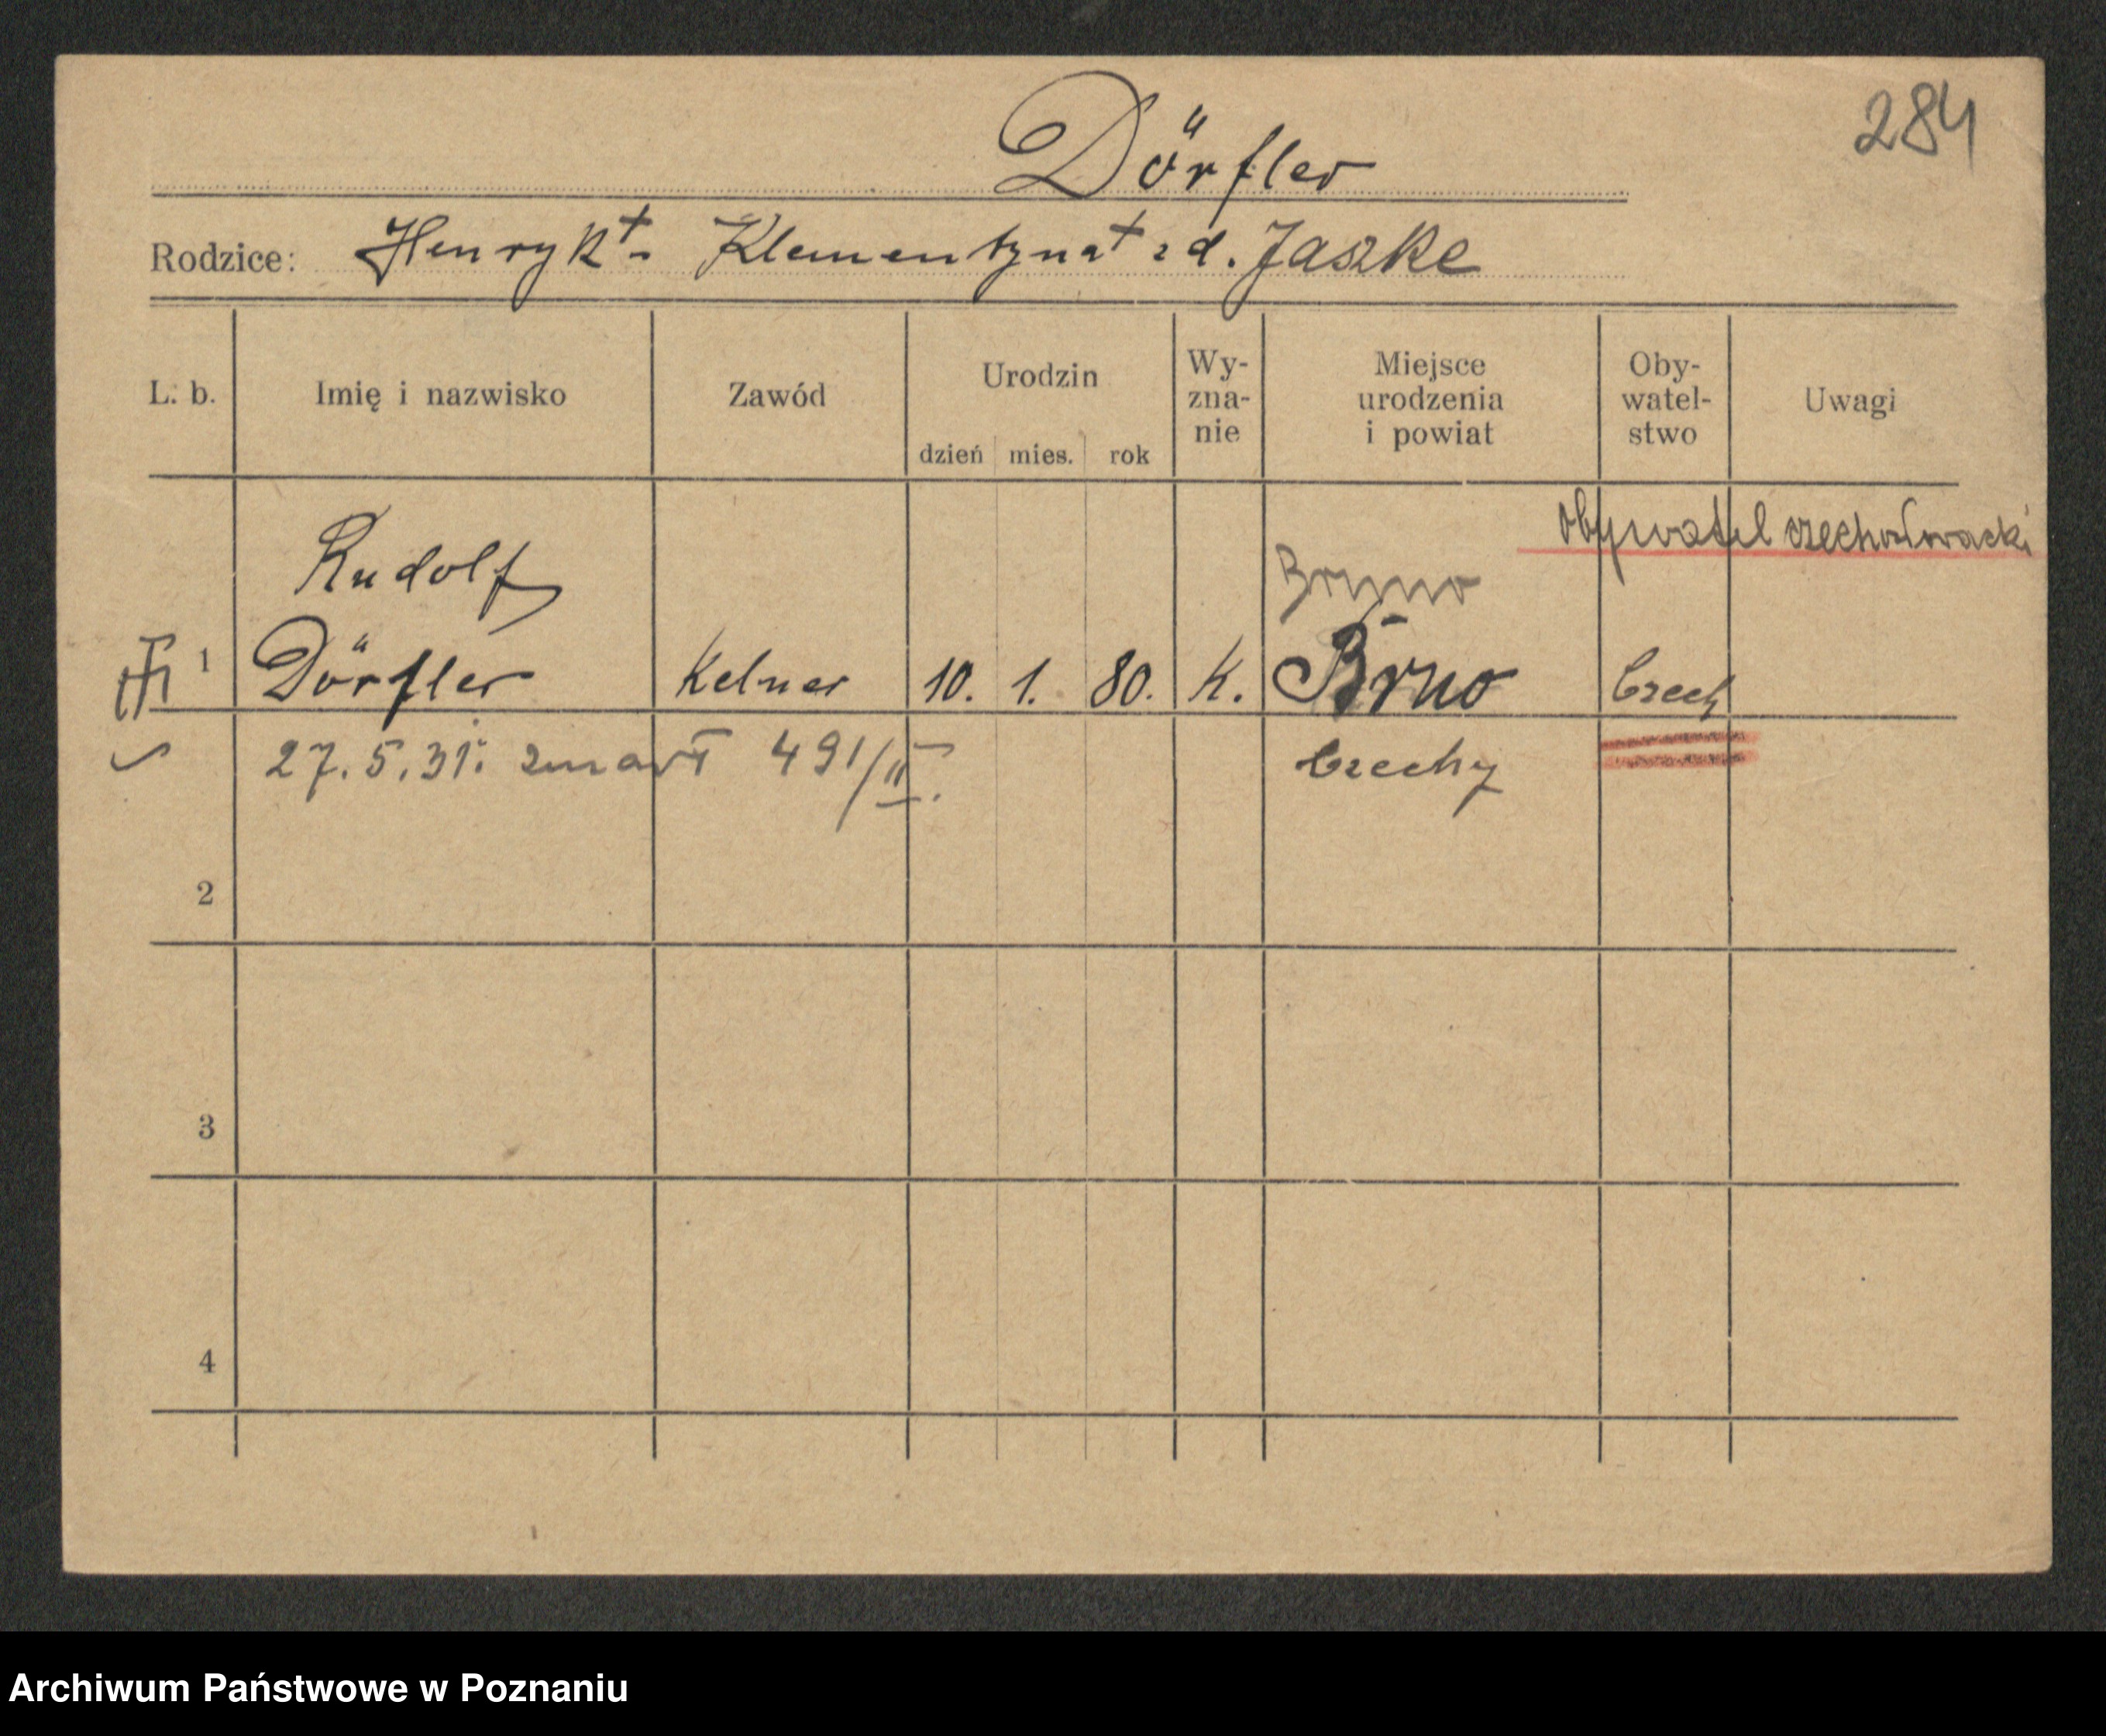 284
Dörfler
Rodzice: Henryk+ - Klementyna+ zd. Jaszke
L. b.
Imię i nazwisko
Zawód
Urodzin
dzień mies. rok
Wy-
zna-
nie
Miejsce
urodzenia
i powiat
Oby-
watel-
stwo
Uwagi
Obywatel czechosłowacki
Rudolf
1 Dörfler Kelner 10. 1. 80. K. Brno Czech
27.5.31. zmarł 491/II. Czechy
2
3
4
Archiwum Państwowe w Poznaniu